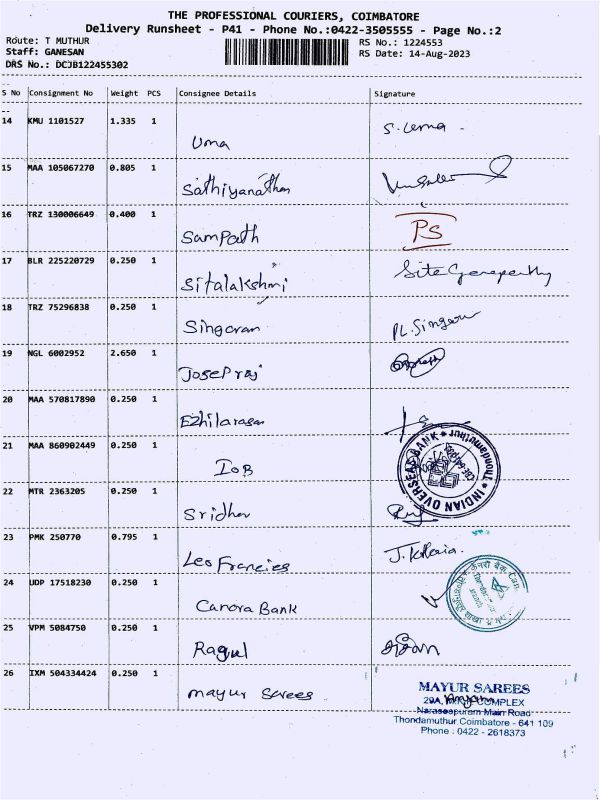 THE PROFESSIONAL COURIERS, COIMBATORE
Delivery Runsheet - P41 - Phone No.:0422-3505555 - Page No.:2
Route: T MUTHUR
RS No.: 1224553
Staff: GANESAN
RS Date: 14-Aug-2023
DRS No.: DCJB122455302
S No Consignment No Weight PCS Consignee Details Signature
14 KMU 1101527 1.335 1 Uma S. Uma
15 MAA 105067270 0.805 1 Sathiyanathan
16 TRZ 130006649 0.400 1 Sampath PS
17 BLR 225220729 0.250 1 Sitalakshmi
18 TRZ 75296838 0.250 1 Singaram PL. Singaram
19 NGL 6002952 2.650 1 Josepraj
20 MAA 570817890 0.250 1 Ezhilarasan
21 MAA 860902449 0.250 1 IOB
INDIAN OVERSEAS BANK Thondamuthur
22 MTR 2363205 0.250 1 Sridhar
23 PMK 250770 0.795 1 Leo Francies
24 UDP 17518230 0.250 1 Canara Bank
25 VPM 5084750 0.250 1 Ragul
26 IXM 504334424 0.250 1 Mayur Sarees
MAYUR SAREES
29A, COMPLEX
Naraseepuram Main Road
Thondamuthur, Coimbatore - 641 109
Phone : 0422 - 2618373